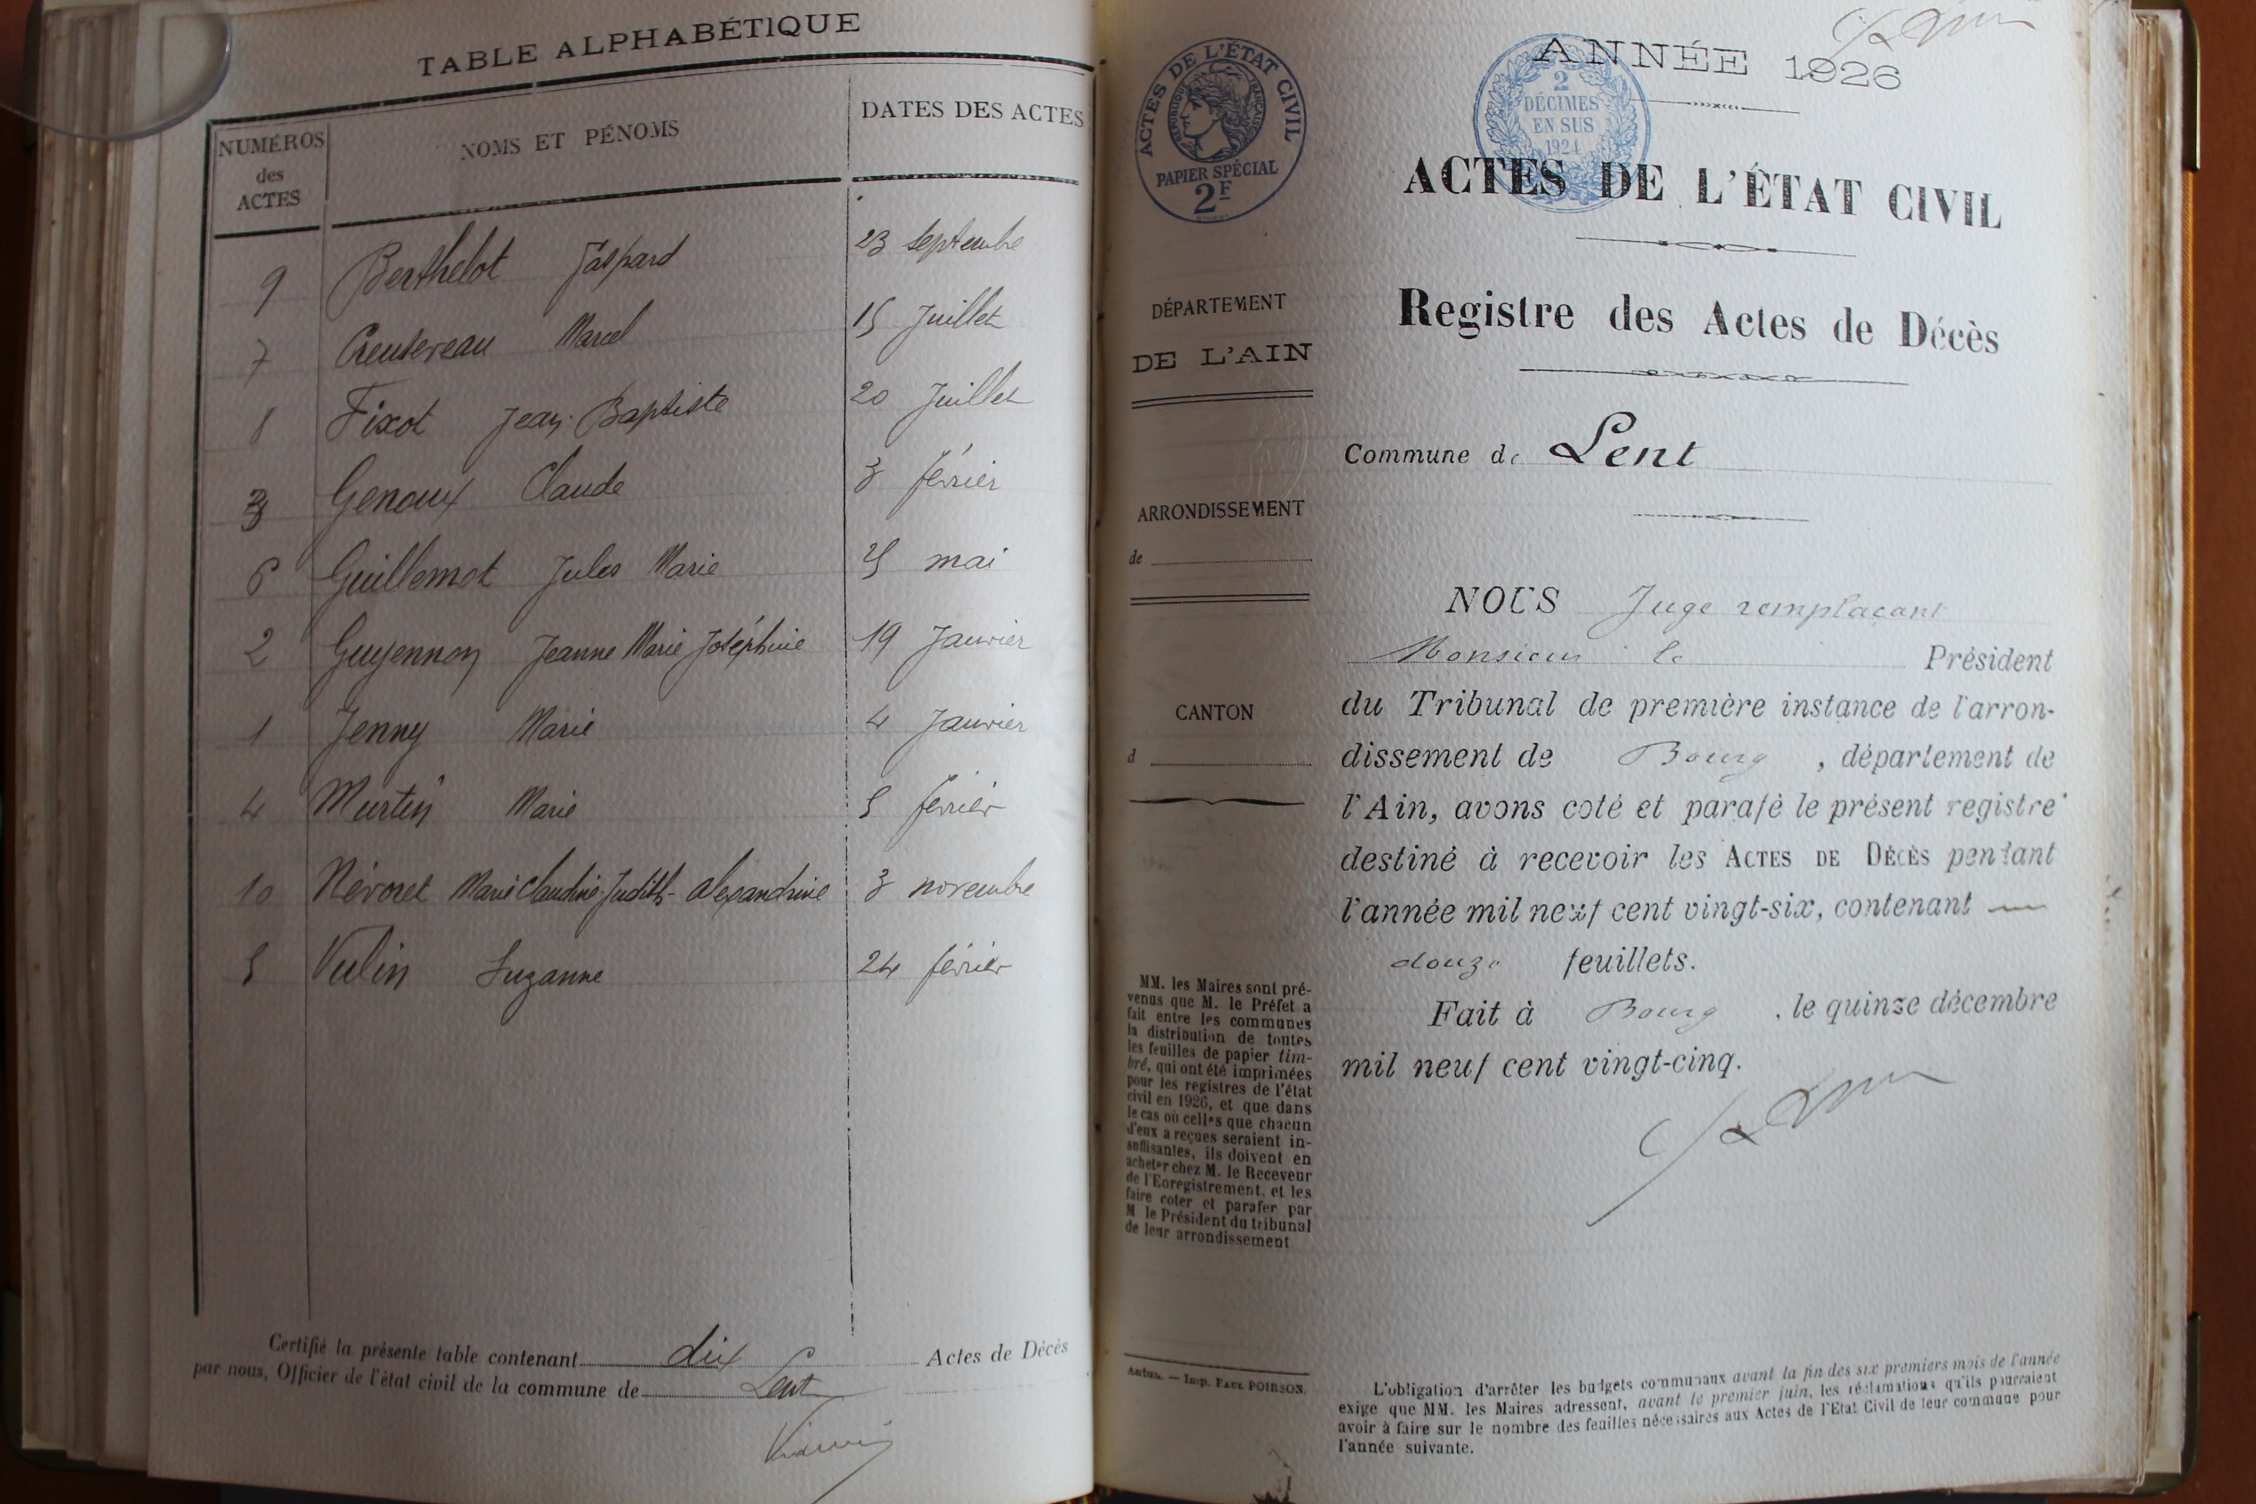 TABLE ALPHABÉTIQUE
NUMÉROS des ACTES
NOMS ET PÉNOMS
DATES DES ACTES
9 Berthelot Gaspard 23 septembre
7 Creusereau Marcel 15 Juillet
8 Fixot Jean-Baptiste 20 Juillet
3 Genoux Claude 3 février
6 Guillemot Jules Marie mai
2 Guyennon Jeanne Marie Joséphine 19 Janvier
1 Jenny Marie 4 Janvier
4 Murtin Marie 5 février
10 Névoret Marie Claudine Judith-Alexandrine 3 novembre
5 Vulin Suzanne 24 février
Certifié la présente table contenant dix Actes de Décès
par nous, Officier de l'état civil de la commune de Lent
ACTES DE L'ÉTAT CIVIL
RÉPUBLIQUE FRANÇAISE
PAPIER SPÉCIAL
2F
DÉPARTEMENT
DE L'AIN
ARRONDISSEMENT
de
CANTON
d
MM. les Maires sont pré-
venus que M. le Préfet a
fait entre les communes
la distribution de toutes
les feuilles de papier tim-
bré, qui ont été imprimées
pour les registres de l'état
civil en 1926, et que dans
le cas où celles que chacun
d'eux a reçues seraient in-
suffisantes, ils doivent en
acheter chez M. le Receveur
de l'Enregistrement, et les
faire coter et parafer par
M le Président du tribunal
de leur arrondissement
Imp. PAUL POIRSON.
ANNÉE 1926
2
DÉCIMES
EN SUS
1924
ACTES DE L'ÉTAT CIVIL
Registre des Actes de Décès
Commune de Lent
NOUS Juge remplaçant
Monsieur le Président
du Tribunal de première instance de l'arron-
dissement de Bourg, département de
l'Ain, avons coté et parafé le présent registre
destiné à recevoir les ACTES DE DÉCÈS pendant
l'année mil neuf cent vingt-six, contenant
douze feuillets.
Fait à Bourg, le quinze décembre
mil neuf cent vingt-cinq.
L'obligation d'arrêter les budgets communaux avant la fin des six premiers mois de l'année
exige que MM. les Maires adressent, avant le premier juin, les réclamations qu'ils pourraient
avoir à faire sur le nombre des feuilles nécessaires aux Actes de l'Etat Civil de leur commune pour
l'année suivante.